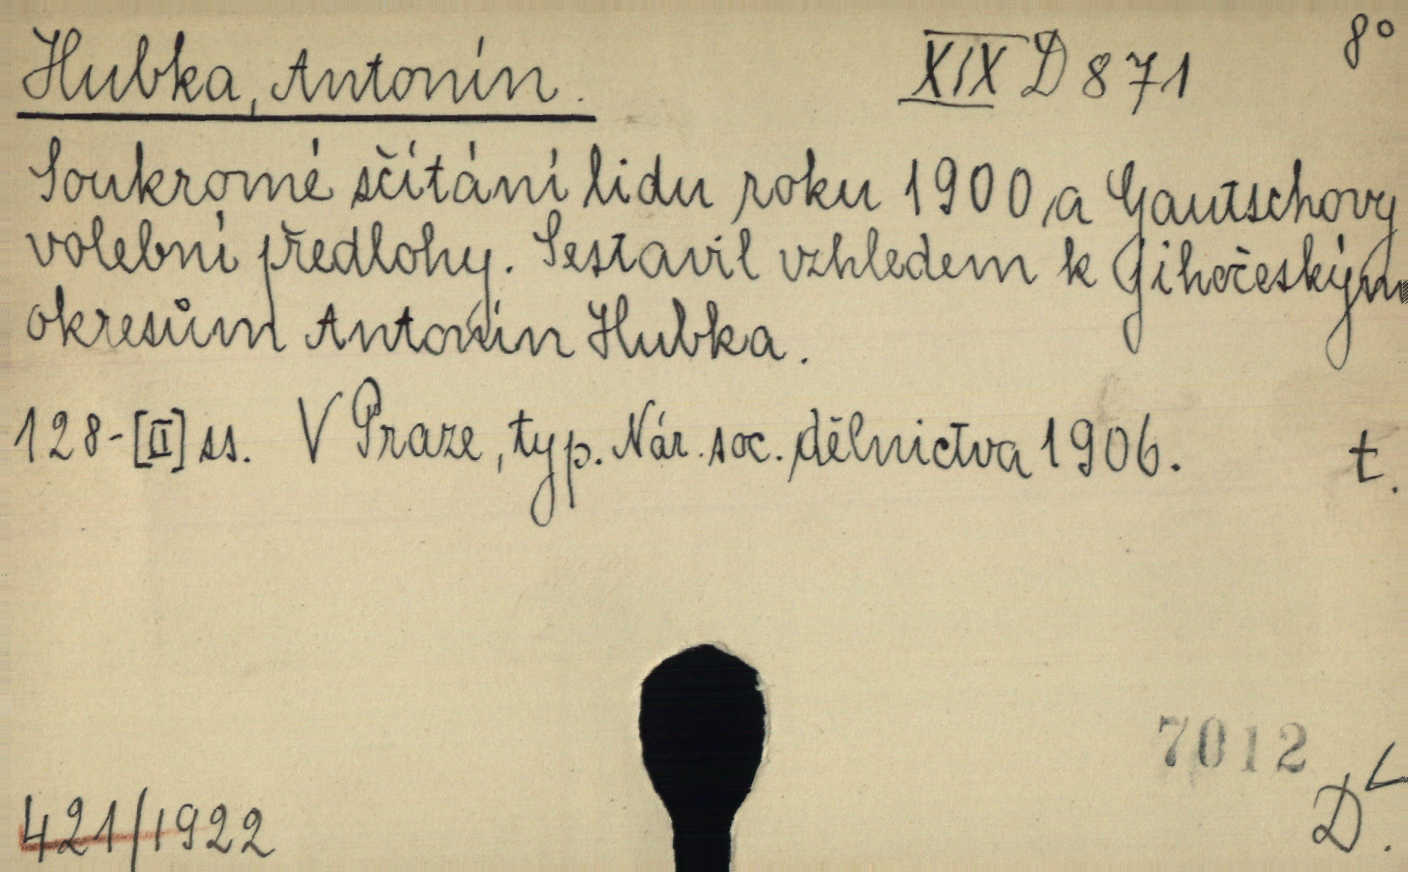 Hubka, Antonín. XIX D 871 8°
Soukromé sčítání lidu roku 1900, a Gautschovy
volební předlohy. Sestavil vzhledem k Jihočeským
okresům Antonín Hubka.
128-[II] ss. V Praze, typ. Nár. soc. dělnictva 1906. t.
7012
421/1922 D.